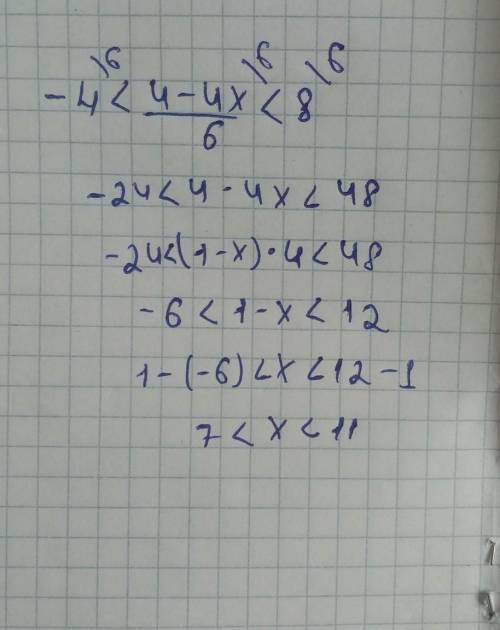 \6 \6 \6
-4 < \frac{4-4x}{6} < 8
-24 < 4 - 4x < 48
-24 < (1-x) · 4 < 48
-6 < 1-x < 12
1-(-6) < x < 12-1
7 < x < 11